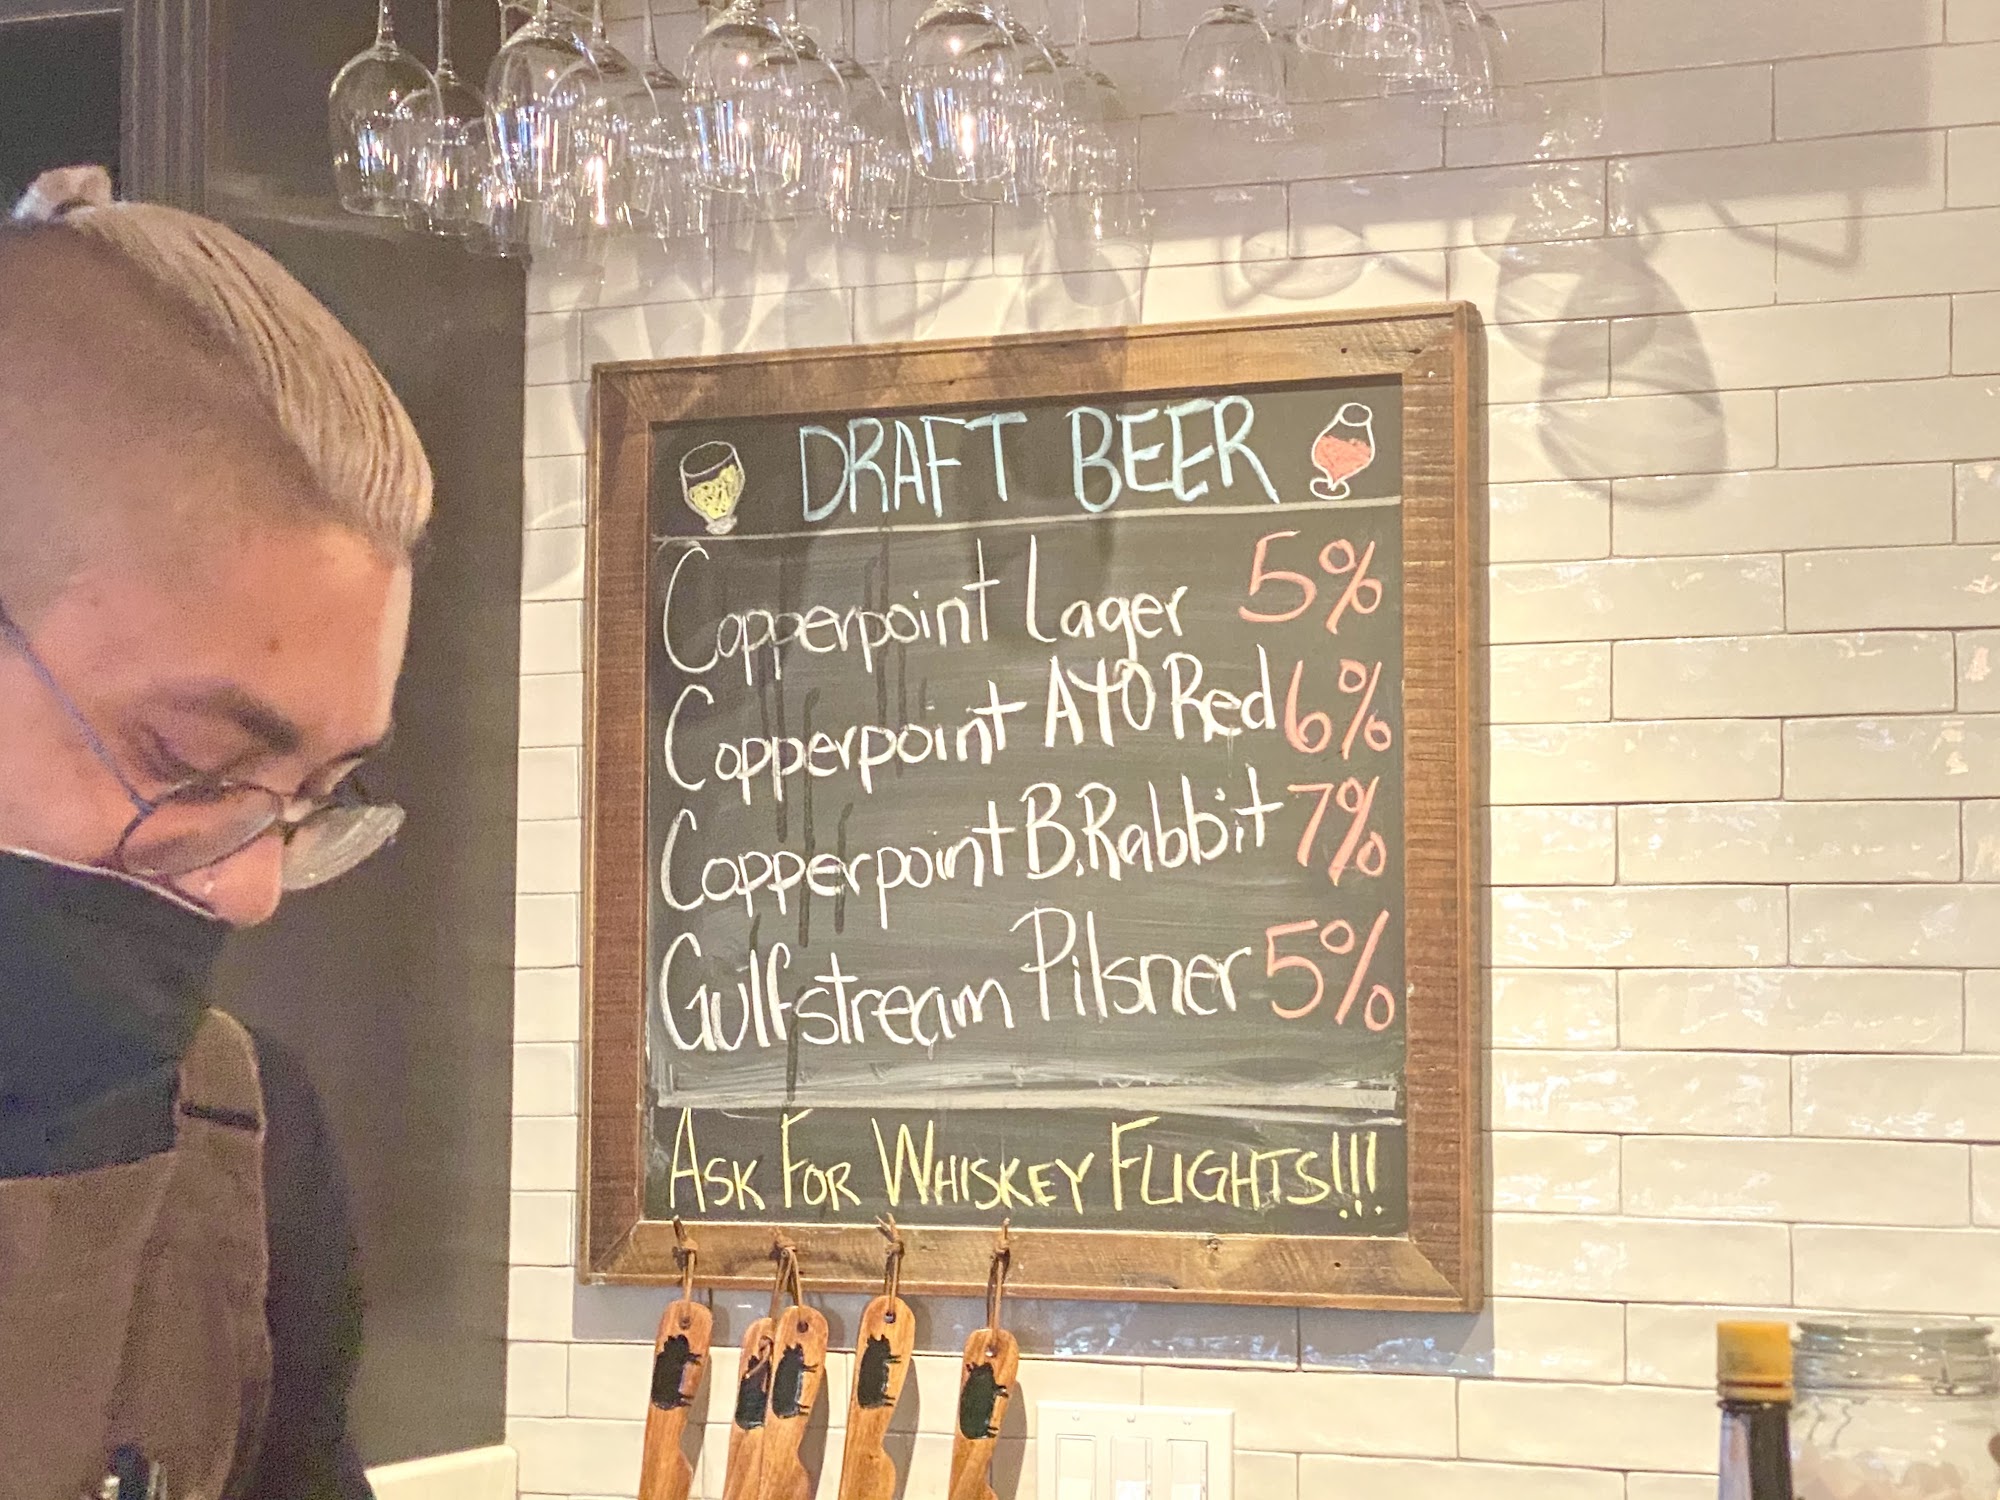 DRAFT BEER
Copperpoint Lager 5%
Copperpoint AYO Red 6%
Copperpoint B.Rabbit 7%
Gulfstream Pilsner 5%
ASK FOR WHISKEY FLIGHTS!!!